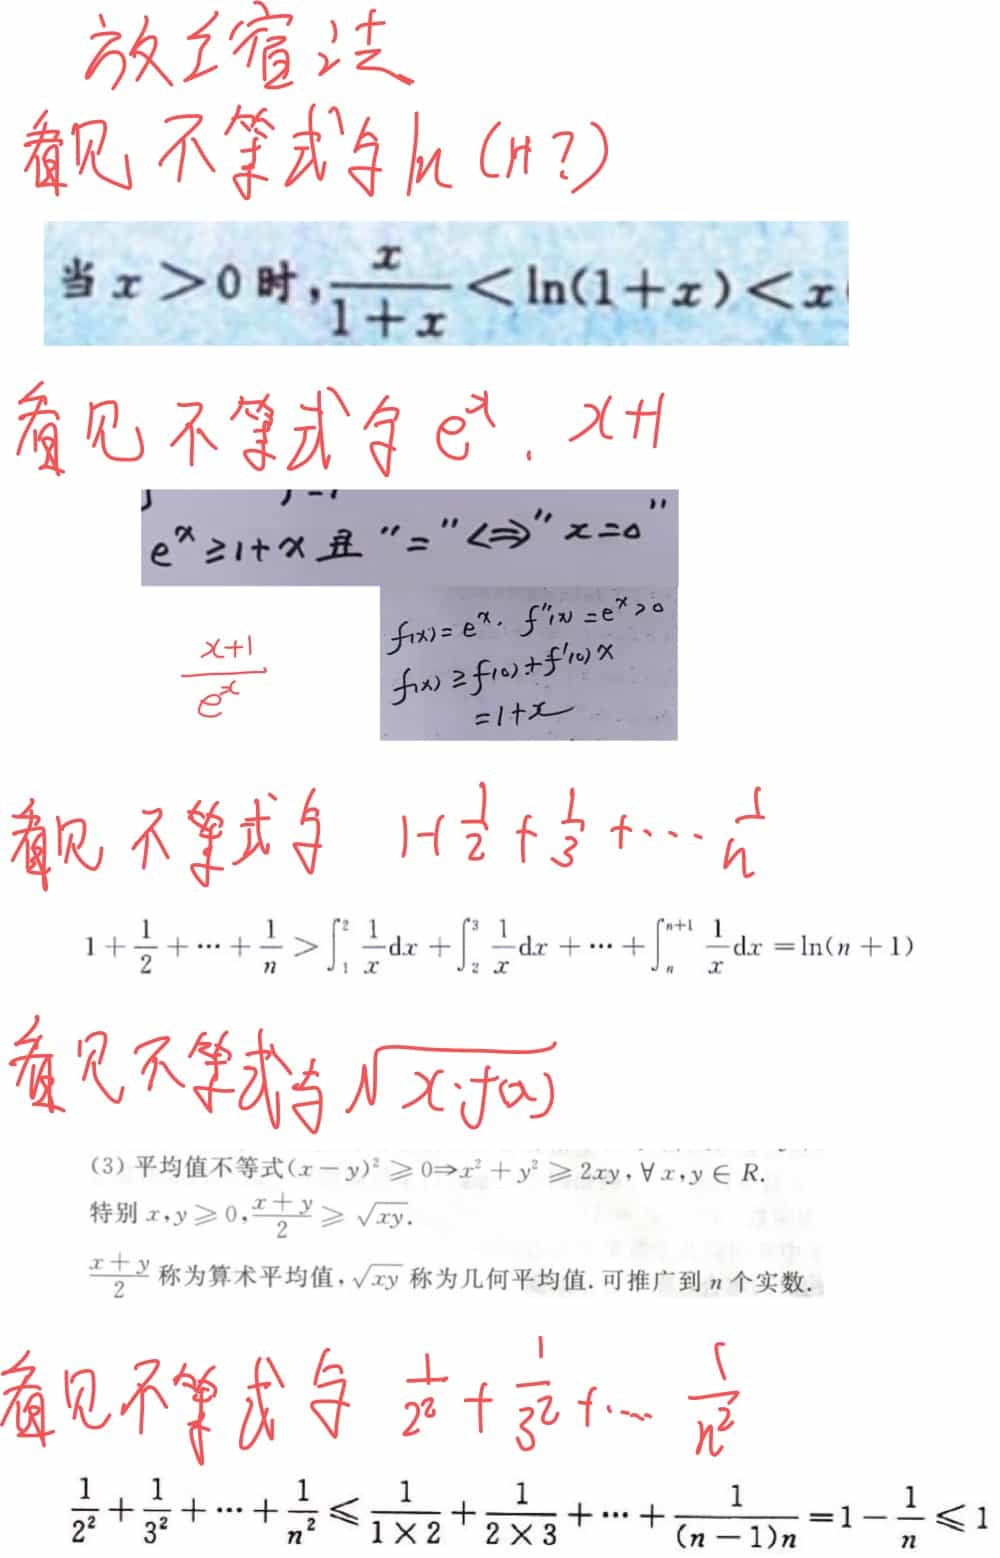 放缩法
看见不等式与ln(1+?)
当x>0时,x/(1+x)<ln(1+x)<x
看见不等式与e^x.x+1
e^x≥1+x且"="⇔"x=0"
f(x)=e^x. f''(x)=e^x>0
f(x)≥f(0)+f'(0)x
=1+x
(x+1)/e^x
看见不等式与 1+1/2+1/3+…1/n
1+1/2+…+1/n>∫₁²1/x dx+∫₂³1/x dx+…+∫ₙⁿ⁺¹1/x dx=ln(n+1)
看见不等式与√(x·f(x))
(3)平均值不等式(x-y)²≥0⇒x²+y²≥2xy,∀x,y∈R.
特别x,y≥0,(x+y)/2≥√(xy).
(x+y)/2称为算术平均值,√(xy)称为几何平均值.可推广到n个实数.
看见不等式与 1/2²+1/3²+…1/n²
1/2²+1/3²+…+1/n²≤1/(1×2)+1/(2×3)+…+1/((n-1)n)=1-1/n≤1